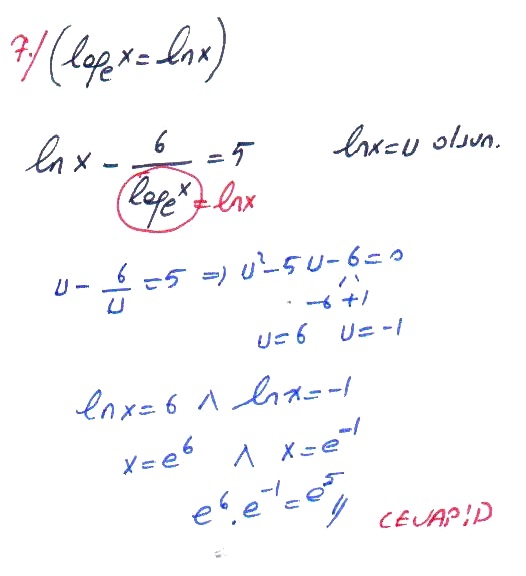 7./ (logₑx = lnx)
lnx - 6/logₑx = 5 lnx = u olsun.
= lnx
u - 6/u = 5 ⇒ u² - 5u - 6 = 0
-6 +1
u = 6 u = -1
lnx = 6 ∧ lnx = -1
x = e⁶ ∧ x = e⁻¹
e⁶ . e⁻¹ = e⁵ //
CEVAP: D